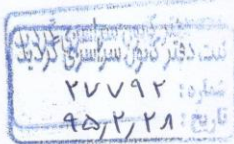 ثبت دفتر کانون سراسری گرلاید
شماره: ۲۷۷۹۲
تاریخ: ۹۵٫۲٫۲۸